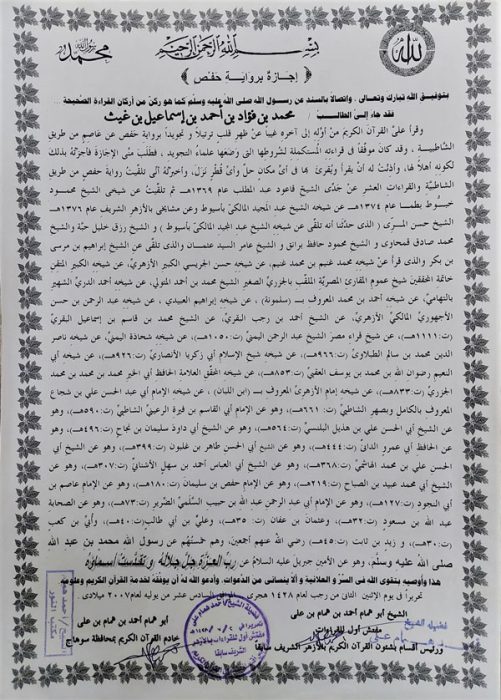 بسم الله الرحمن الرحيم
﴿ إجازة برواية حفص ﴾
بتوفيق الله تبارك وتعالى . واتصالاً بالسند عن رسول الله صلى الله عليه وسلم كما هو ركن من أركان القراءة الصحيحة ...
فقد جاء إلىّ الطالب / محمد بن فؤاد بن أحمد بن إسماعيل بن غيث
وقرأ علىّ القرآن الكريم من أوله إلى آخره غيباً عن ظهر قلب ترتيلاً و تجويداً برواية حفص عن عاصم من طريق
الشاطبية . وقد كان موفقاً في قراءته المستكملة لشروطها التي وضعها علماء التجويد ، فطلب منى الإجازة فأجزته بذلك
لكونه أهلاً لها، وأذنت له أن يقرأ ويُقرئ بها في أي مكان حل وأي قُطر نزل، وأخبرته أني تلقيت رواية حفص من طريق
الشاطبية والقراءات العشر عن جدّى الشيخ قاعود عبد المطلب عام ١٣٦٩هـ، ثم تلقيت عن شيخى الشيخ محمود
خبوط بطما عام ١٣٧٤هـ عن شيخه الشيخ عبد المجيد المالكي بأسيوط وعن مشايخي بالأزهر الشريف عام ١٣٧٦هـ
الشيخ حسن المرّى ( الذى حدثنا أنه تلقى عن شيخه الشيخ عبد المجيد المالكي بأسيوط ) و الشيخ رزق خليل حبّة والشيخ
محمد صادق قمحاوى و الشيخ محمود حافظ برانق و الشيخ عامر السيد عثمان والذى تلقى عن الشيخ إبراهيم بن مرسى
بن بكر والذى قرأ عن شيخه غنيم بن محمد غنيم، عن شيخه حسن الجريسي الكبير الأزهري، عن شيخه الكبير المتقن
خاتمة المحققين شيخ عموم المقارئ المصرية الملقب بالجزري الصغير الشيخ محمد بن أحمد المتولي، عن شيخه أحمد الدري الشهير
بالتهامي، عن شيخه أحمد بن محمد المعروف بـ (سلمونة) ، عن شيخه إبراهيم العبيدي ، عن شيخه عبد الرحمن بن حسن
الأجهوري المالكي الأزهري، عن الشيخ أحمد بن رجب البقري، عن الشيخ محمد بن قاسم بن إسماعيل البقري
(ت:١١١١هـ)، عن شيخ قراء مصر الشيخ عبد الرحمن اليمني (ت:١٠٥٠هـ)، عن شيخه شحاذة اليمني، عن شيخه ناصر
الدين محمد بن سالم الطبلاوى (ت:٩٦٦هـ)، عن شيخه شيخ الإسلام أبي زكريا الأنصارى (ت:٩٢٦هـ)، عن شيخه أبي
النعيم رضوان الله بن محمد بن يوسف العقبي (ت:٨٥٣هـ)، عن شيخه المحقق العلامة الحافظ أبي الخير محمد بن محمد بن محمد بن
الجزري (ت:٨٣٣هـ)، عن شيخه إمام الأزهري المعروف بـ (ابن اللبان) ، عن شيخه الإمام أبي عبد الحسن علي بن شجاع
المعروف بالكمال وبصهر الشاطبي (ت: ٦٦١هـ)، وهو عن شيخه الإمام أبي القاسم بن فيرة الرعيني الشاطبي (ت:٥٩٠هـ)،
وهو عن الشيخ أبي الحسن علي بن هذيل البلنسي (ت:٥٦٤هـ)، وهو عن الشيخ أبي داود سليمان بن نجاح (ت:٤٩٦هـ)،
وهو عن الحافظ أبي عمرو الداني (ت:٤٤٤هـ)، وهو عن الشيخ أبي الحسن طاهر بن غلبون (ت:٣٩٩هـ)، وهو عن الشيخ أبي
الحسن علي بن محمد الهاشمي (ت:٣٦٨هـ)، وهو عن الشيخ أبي العباس أحمد بن سهل الأشناني (ت:٣٠٧هـ)، وهو عن
الشيخ أبي محمد عبيد بن الصباح (ت:٢١٩هـ)، وهو عن الإمام حفص بن سليمان (ت:١٨٠هـ)، وهو عن الإمام عاصم بن
أبي النجود (ت:١٢٧هـ)، وهو عن الإمام أبي عبد الرحمن عبد الله بن حبيب السُّلَمي الضرير (ت:٧٣هـ)، وهو عن الصحابة
عبد الله بن مسعود (ت:٣٢هـ)، وعثمان بن عفان (ت:٣٥هـ)، وعلي بن أبي طالب (ت:٤٠هـ)، وأبي بن كعب
(ت:٣٠هـ) ، و زيد بن ثابت (ت:٤٥هـ) رضى الله عنهم أجمعين، وهم خمستهم عن رسول الله محمد بن عبد الله
صلى الله عليه وسلم، وهو عن الأمين جبريل عليه السلام عن رب العزة جل جلاله و تقدست أسماؤه
هذا وأوصيه بتقوى الله في السر والعلانية وألا ينساني من الدعوات، وأدعو الله له أن يوفقه لخدمة القرآن الكريم وعلومه
تحريراً في يوم الاثنين الثاني من رجب لعام ١٤٢٨ هجري السادس عشر من يوليه لعام ٢٠٠٧ ميلادي
الشيخ أبو همام أحمد بن همام بن على
مفتش أول للقراءات
ورئيس أقسام بشئون القرآن الكريم بالأزهر الشريف سابقاً
أبو همام أحمد بن همام بن على
خادم القرآن الكريم بمحافظة سوهاج